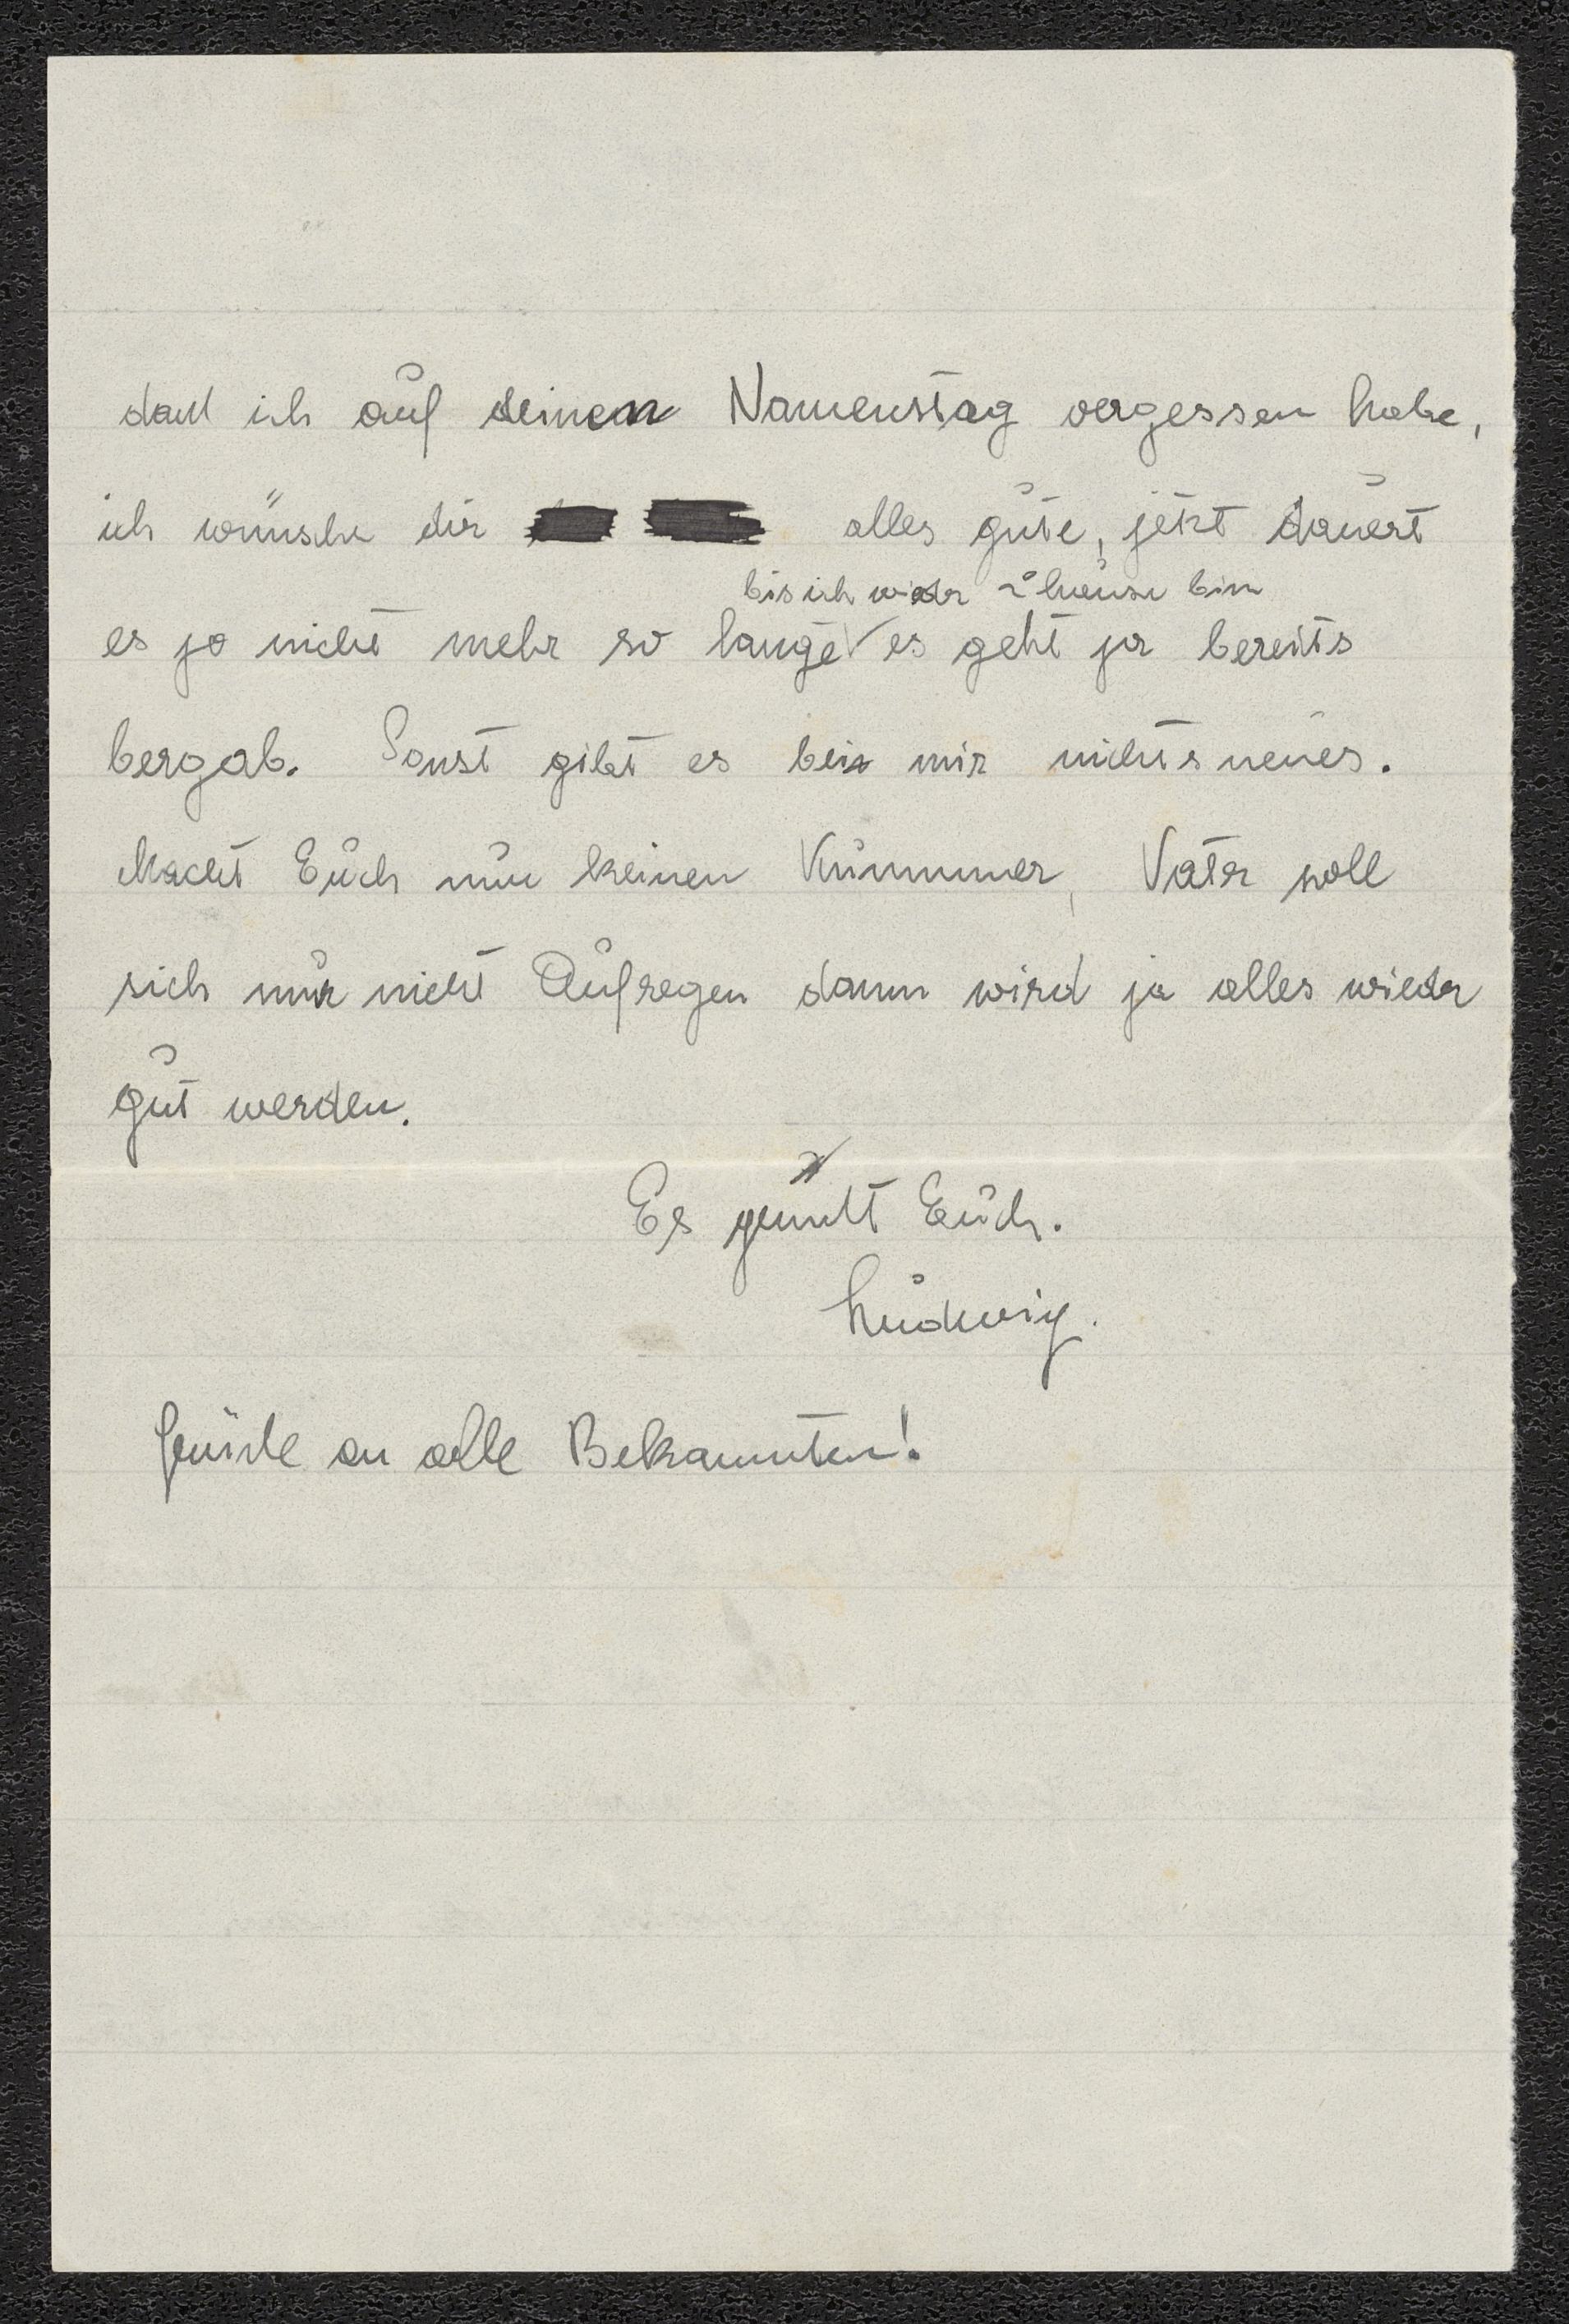 daß ich auf deinen Namenstag vergessen habe,
ich wünsche dir alles gute, jetzt dauert
bis ich wieder z'hause bin
es ja nicht mehr so lange es geht ja bereits
bergab. Sonst gibt es bei mir nichts neues.
Macht Euch nur keinen Kummer, Vater soll
sich nur nicht Aufregen dann wird ja alles wieder
gut werden.
Es grüßt Euch.
Ludwig.
Grüße an alle Bekannten!